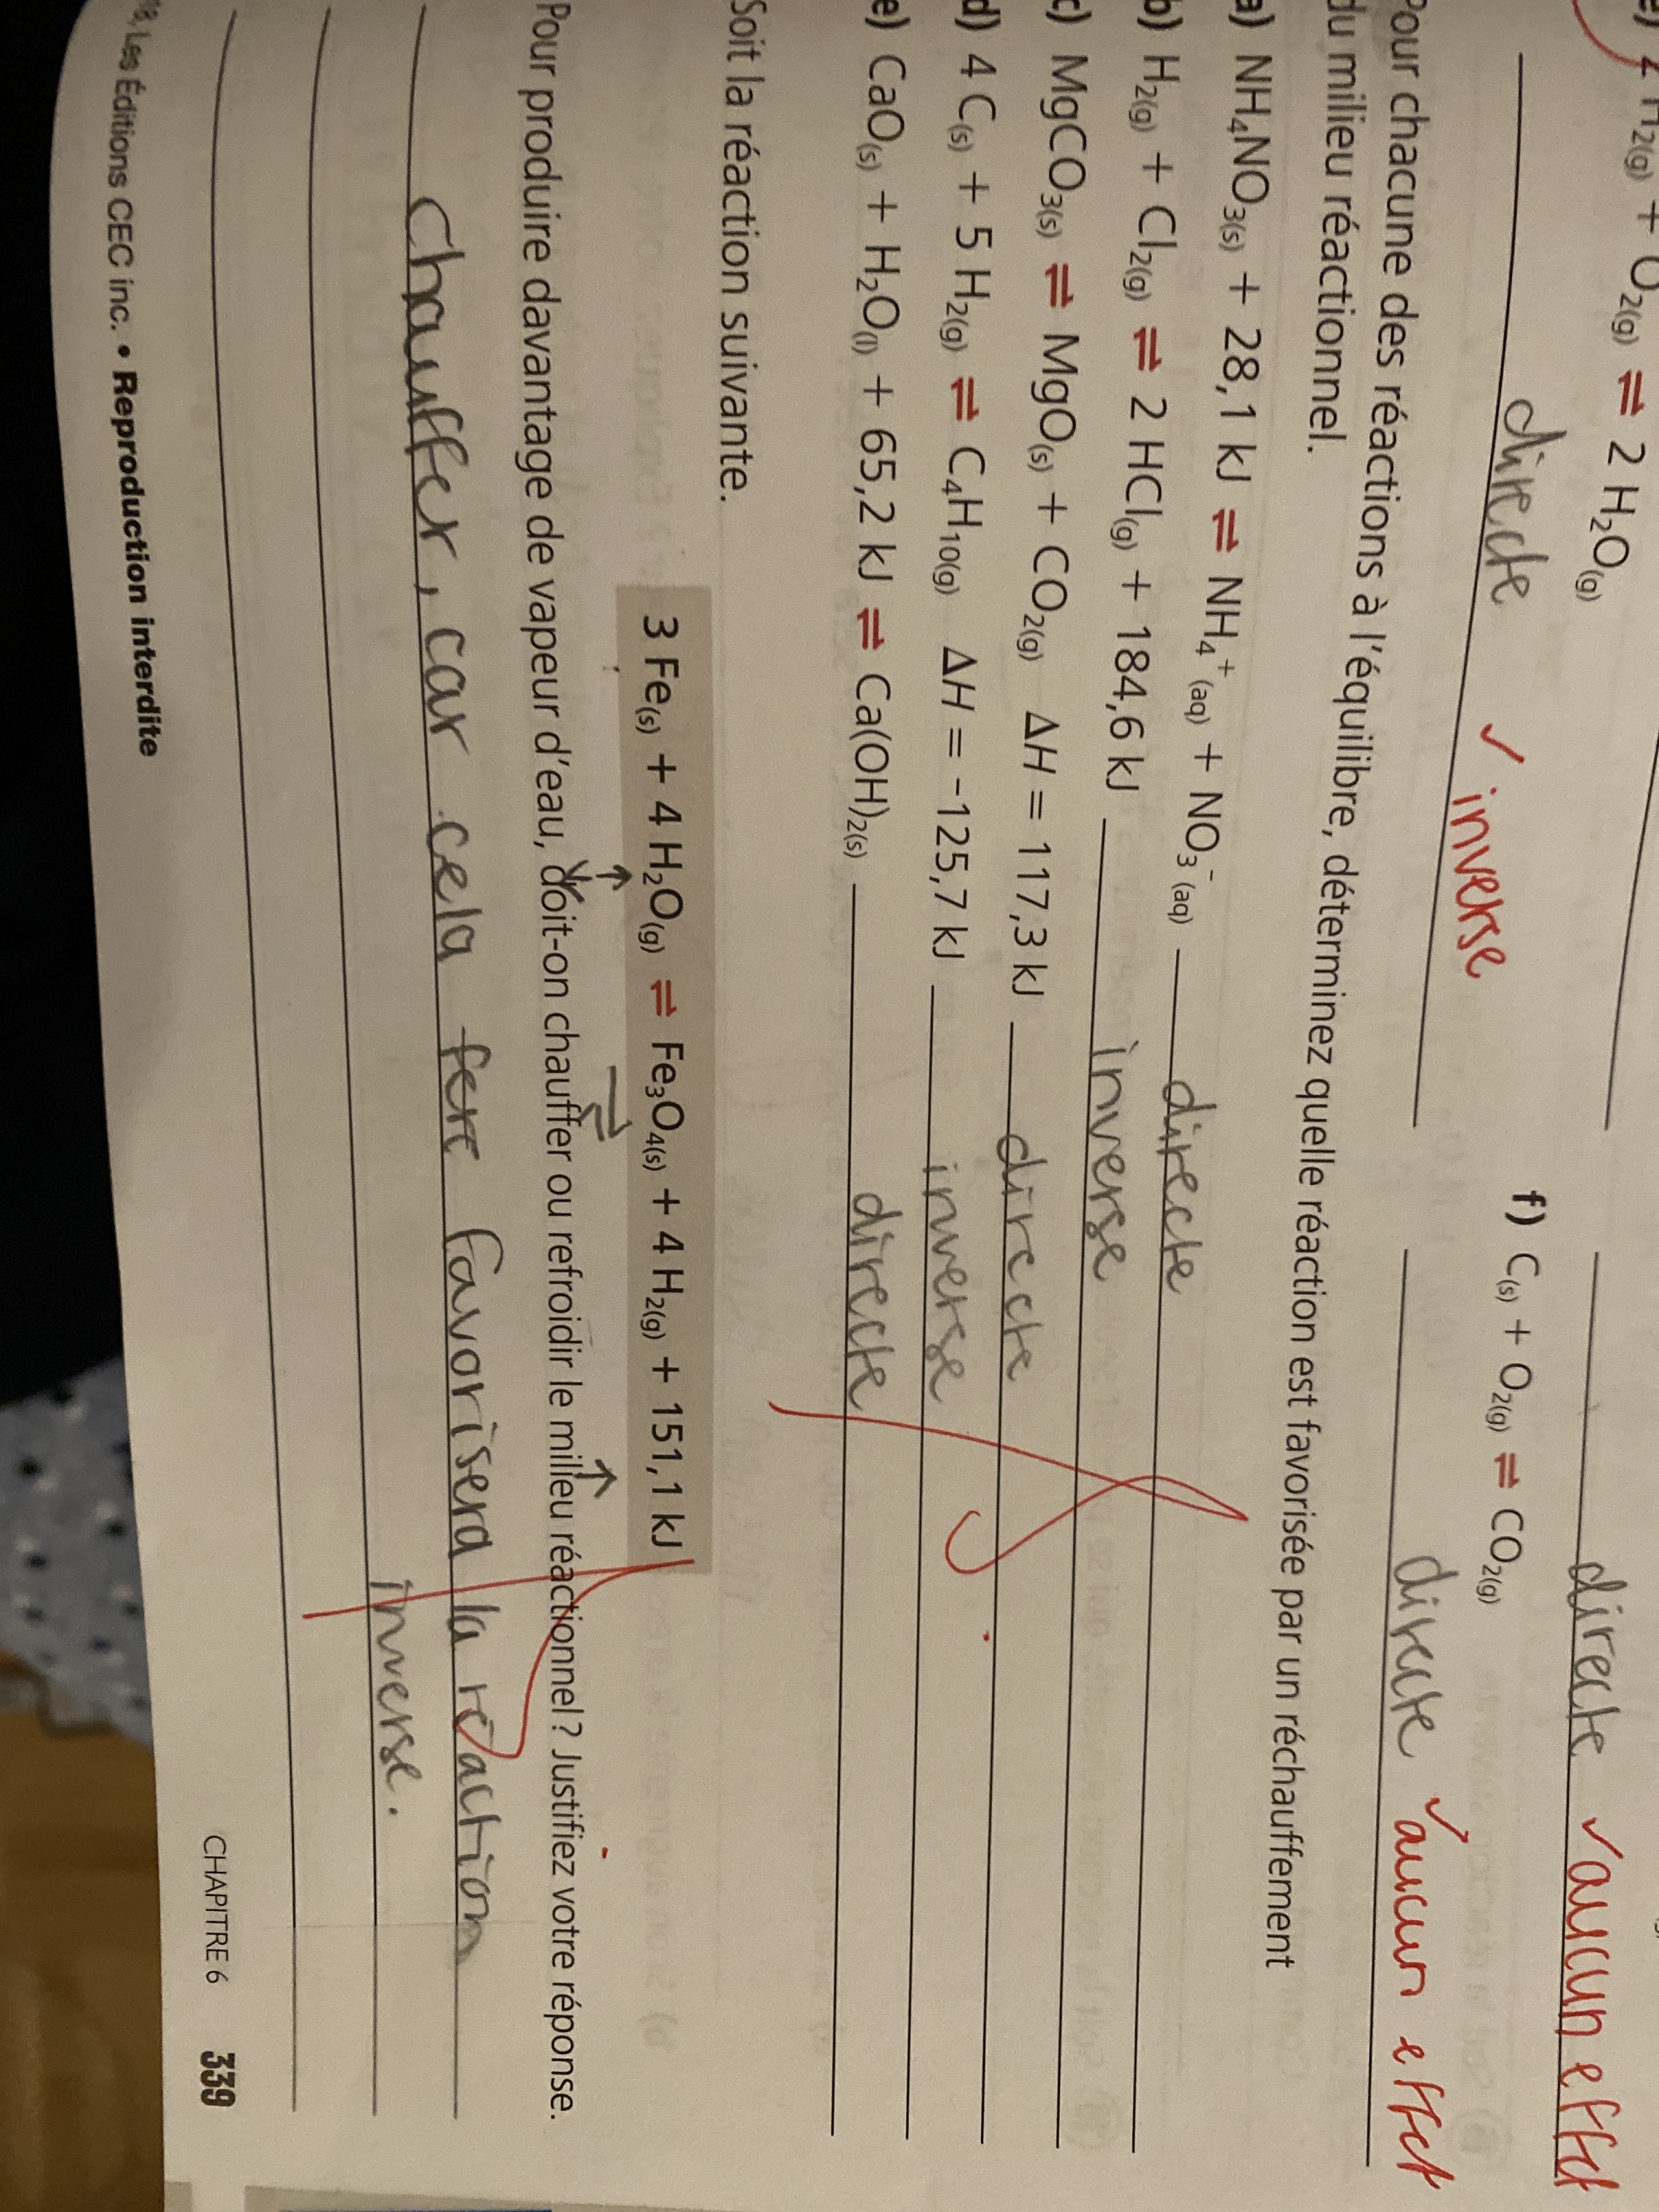 2 H₂(g) + O₂(g) ⇌ 2 H₂O(g)
directe ✓ inverse
directe ✓ aucun effet
f) C(s) + O₂(g) ⇌ CO₂(g)
directe ✓ aucun effet
Pour chacune des réactions à l'équilibre, déterminez quelle réaction est favorisée par un réchauffement
du milieu réactionnel.
a) NH₄NO₃(s) + 28,1 kJ ⇌ NH₄⁺(aq) + NO₃⁻(aq) directe
b) H₂(g) + Cl₂(g) ⇌ 2 HCl(g) + 184,6 kJ inverse
c) MgCO₃(s) ⇌ MgO(s) + CO₂(g) ΔH = 117,3 kJ directe
d) 4 C(s) + 5 H₂(g) ⇌ C₄H₁₀(g) ΔH = -125,7 kJ inverse
e) CaO(s) + H₂O(l) + 65,2 kJ ⇌ Ca(OH)₂(s) directe
Soit la réaction suivante.
3 Fe(s) + 4 H₂O(g) ⇌ Fe₃O₄(s) + 4 H₂(g) + 151,1 kJ
Pour produire davantage de vapeur d'eau, doit-on chauffer ou refroidir le milieu réactionnel? Justifiez votre réponse.
Chauffer, car cela favorisera la réaction
inverse.
18, Les Éditions CEC inc. • Reproduction interdite
CHAPITRE 6 339